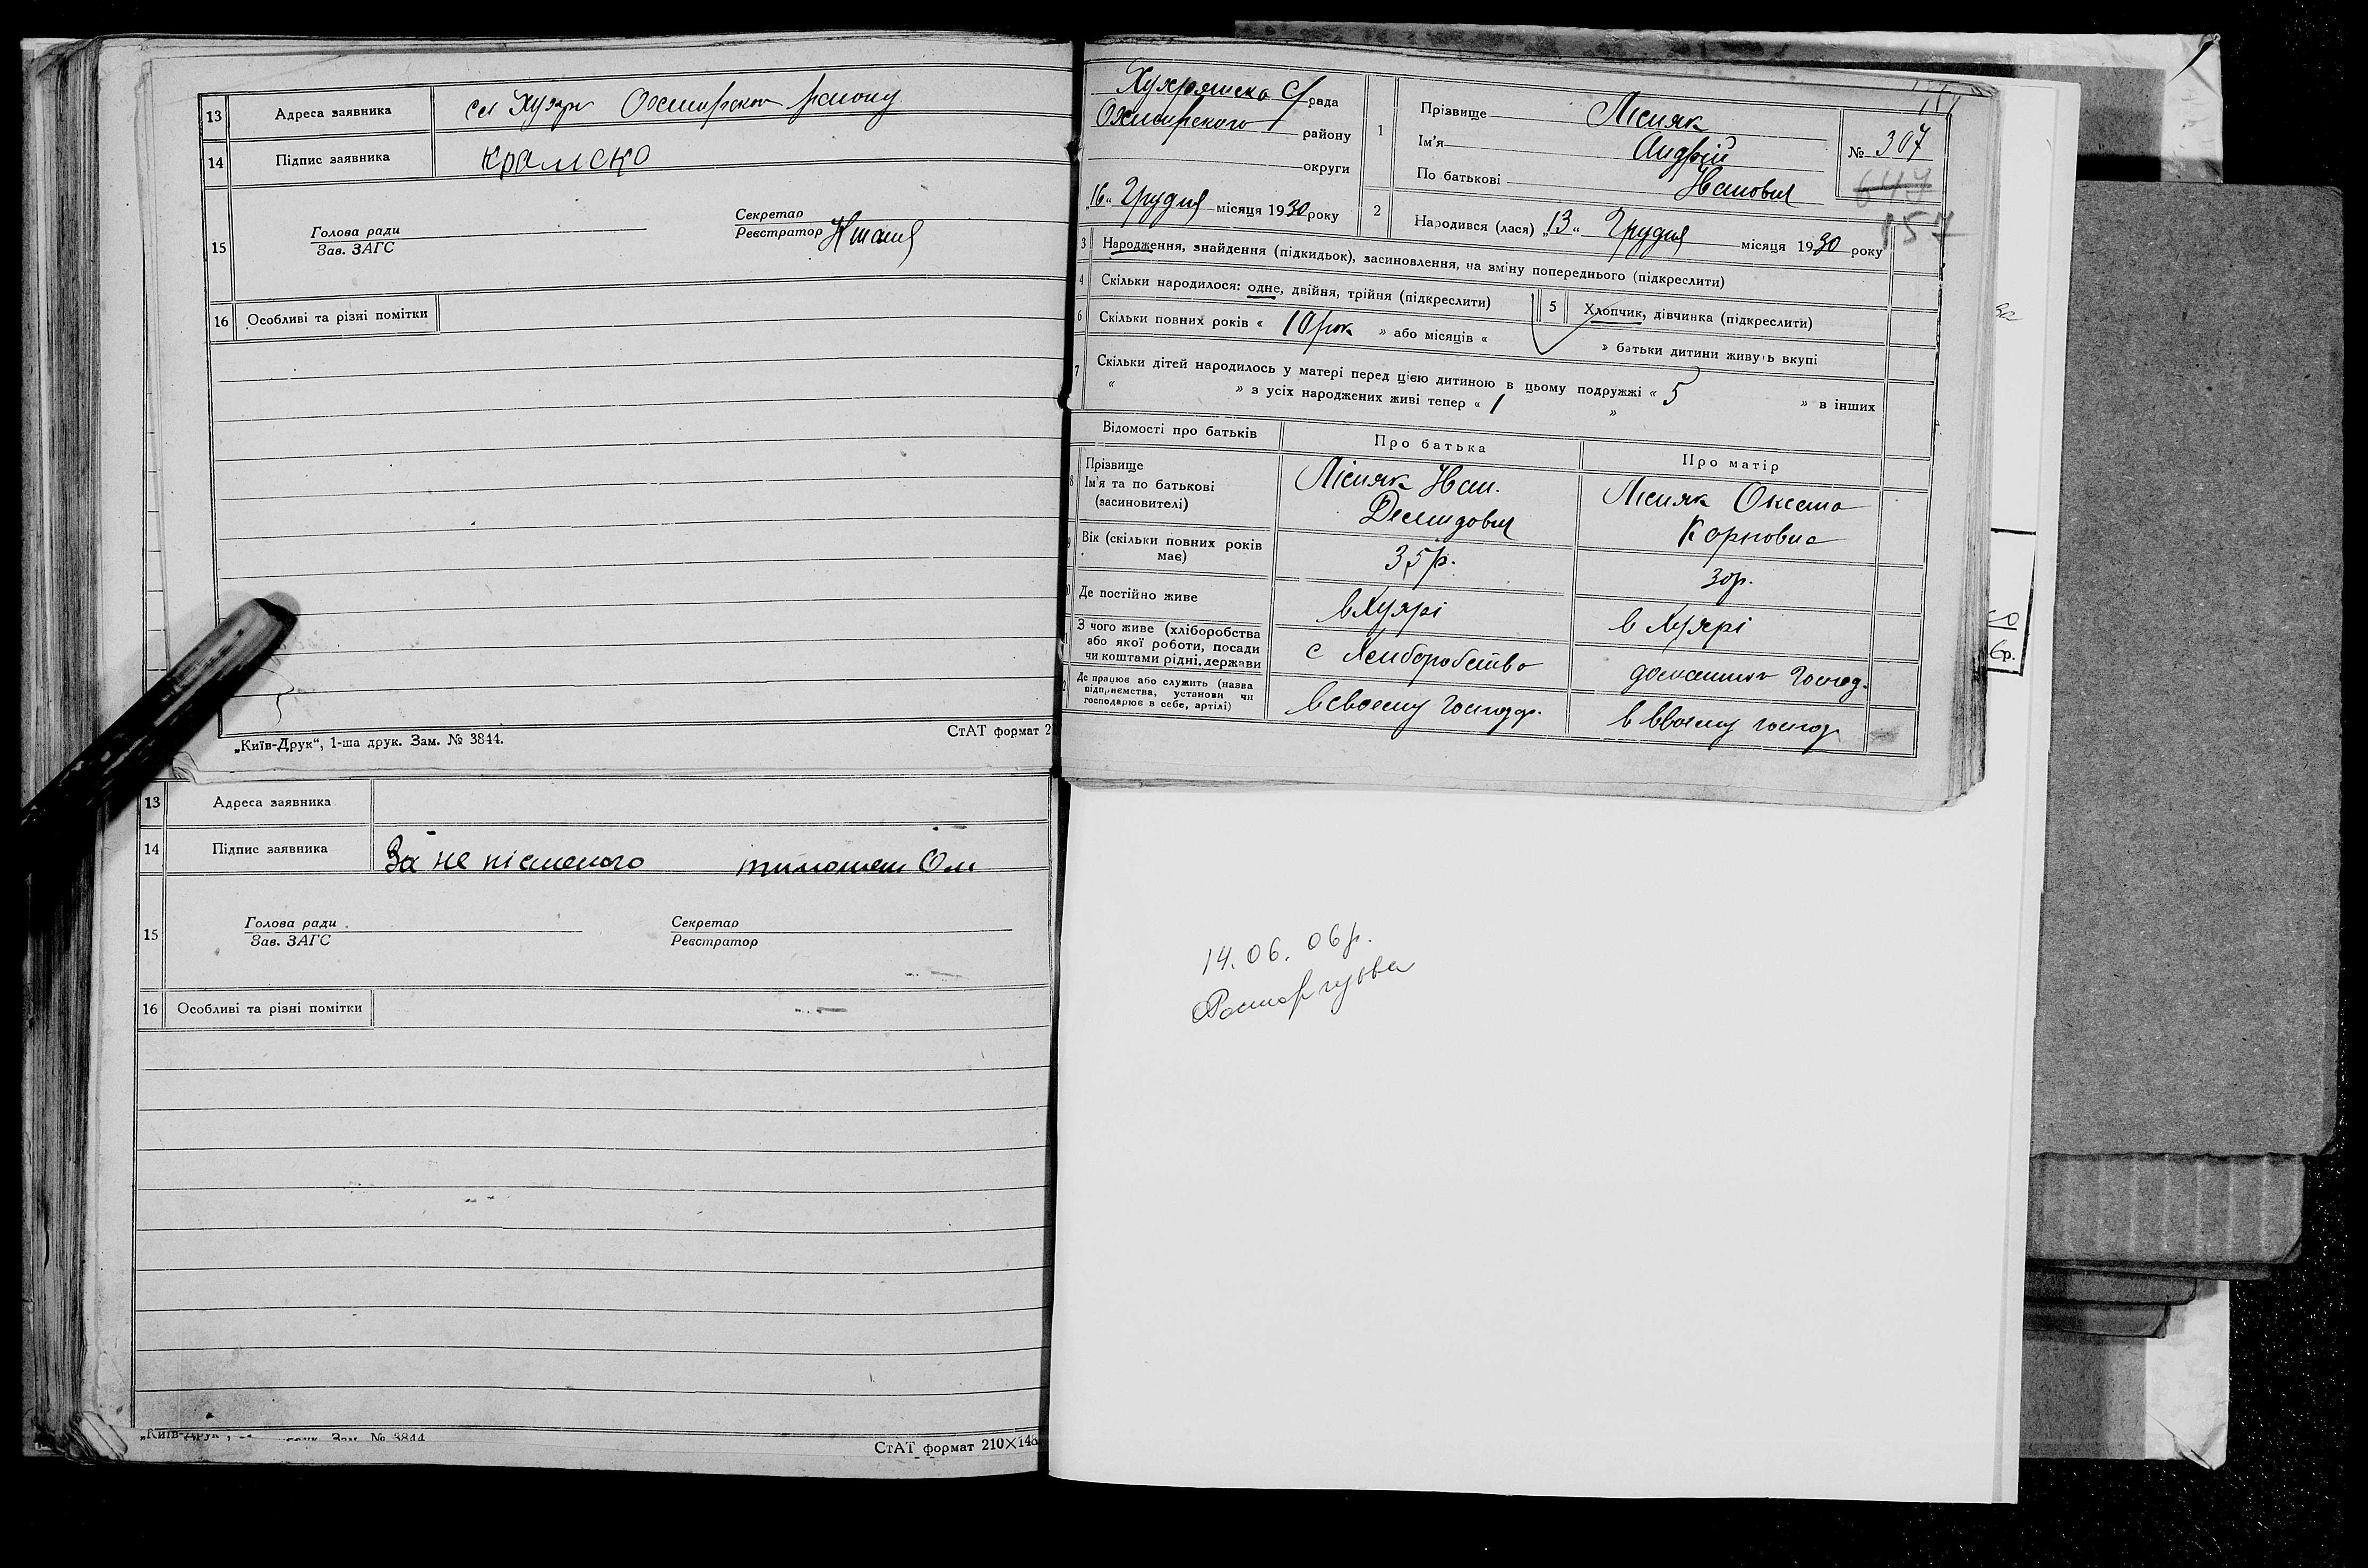 13 Адреса заявника сел Хухри Охтирсько району
14 Підпис заявника
15 Голова ради
Зав. ЗАГС
Секретар
Реєстратор
16 Особливі та різні помітки
„Київ-Друк“, 1-ша друк. Зам. № 3844.
СтАТ формат 2
13 Адреса заявника
14 Підпис заявника За не písменого
15 Голова ради
Зав. ЗАГС
Секретар
Реєстратор
16 Особливі та різні помітки
Зам. № 3844
СтАТ формат 210×148
Хухрянська С/рада
Охтирського району
округи
„16“ Грудня місяця 1930 року
1 Прізвище Лісняк
Ім'я Андрій
По батькові Іванович
№ 307
647
157
2 Народився (лася) „13“ Грудня місяця 1930 року
3 Народження, знайдення (підкидьок), засиновлення, на зміну попереднього (підкреслити)
4 Скільки народилося: одне, двійня, трійня (підкреслити)
5 Хлопчик, дівчинка (підкреслити)
6 Скільки повних років « 10 рок » або місяців « » батьки дитини живуть вкупі
7 Скільки дітей народилось у матері перед цією дитиною в цьому подружжі « 5 » в інших
« » з усіх народжених живі тепер « 1 »
Відомості про батьків
Про батька
Про матір
8 Прізвище
Ім'я та по батькові
(засиновителі)
Лісняк Іван.
Демидович
Лісняк Оксана
Корновна
9 Вік (скільки повних років
має)
35 р.
30 р.
Де постійно живе
в Хухрі
в Хухрі
З чого живе (хліборобства
або якої роботи, посади
чи коштами рідні, держави
с Хліборобство
домашнім господ.
Де працює або служить (назва
підприємства, установи чи
господарює в себе, артілі)
в своєму господар.
в свойму господ
14.06.06р.